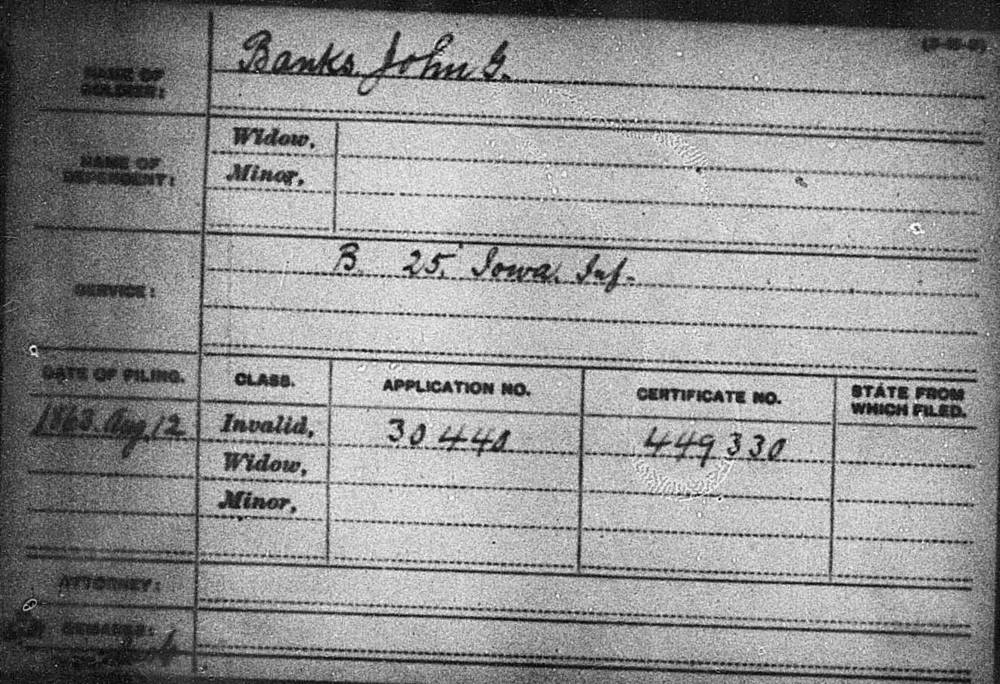 NAME OF SOLDIER: Banks, John G.
NAME OF DEPENDENT: Widow,
Minor,
SERVICE: B. 25, Iowa Inf.
DATE OF FILING. CLASS. APPLICATION NO. CERTIFICATE NO. STATE FROM WHICH FILED.
1863 Aug. 12 Invalid, 30440 449330
Widow,
Minor,
ATTORNEY:
REMARKS: